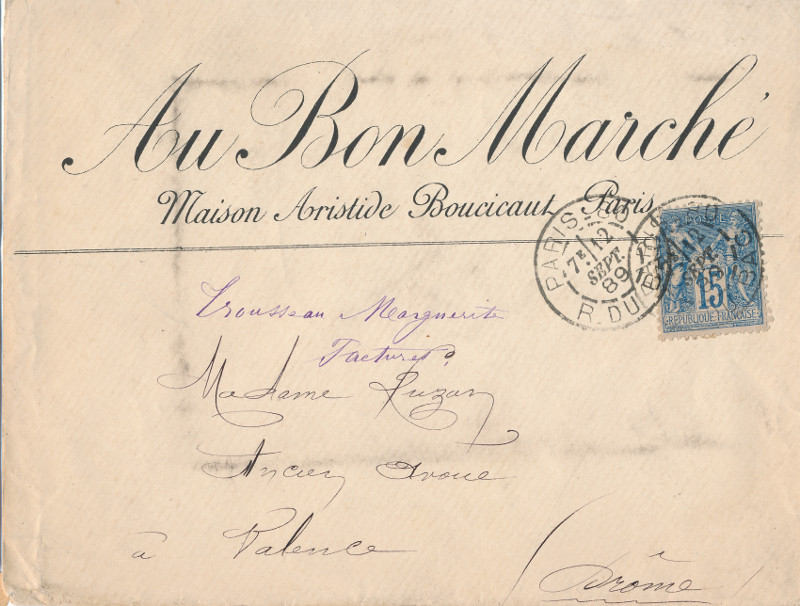 Au Bon Marché
Maison Aristide Boucicaut Paris
PARIS
7E 12
SEPT.
89
R. DU BAC
POSTES
15
REPUBLIQUE FRANÇAISE
Trousseau Marguerite
Factures
Madame Luzan
Ancien Avoué
à Valence
Drôme